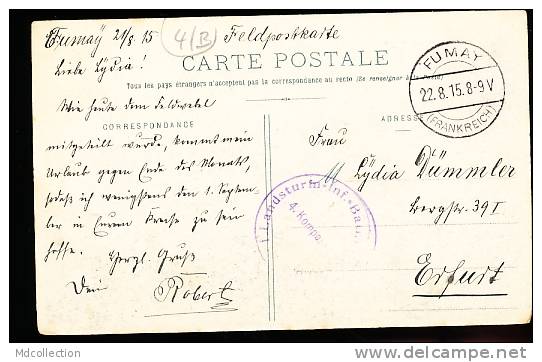 Fumay 21/8. 15 4/(B) Feldpostkarte
CARTE POSTALE
Tous les pays étrangers n'acceptent pas la correspondance au recto (Se renseigner à la Poste)
CORRESPONDANCE
ADRESSE
Liebe Lydia!
Wie heute dem Feldwebel
mitgeteilt wurde, kommt mein
Urlaub gegen Ende des Monats,
sodaß ich wenigstens den 1. Septem-
ber in Eurem Kreise zu sein
hoffe.
Herzl. Gruß
Dein Robert
FUMAY
22.8.15.8-9V
(FRANKREICH)
Frau
Lydia Dümmler
Bergstr. 39 I
Erfurt
Landsturm-Inf.-Batl.
4. Komp.
Mdcollection
www.delcampe.net